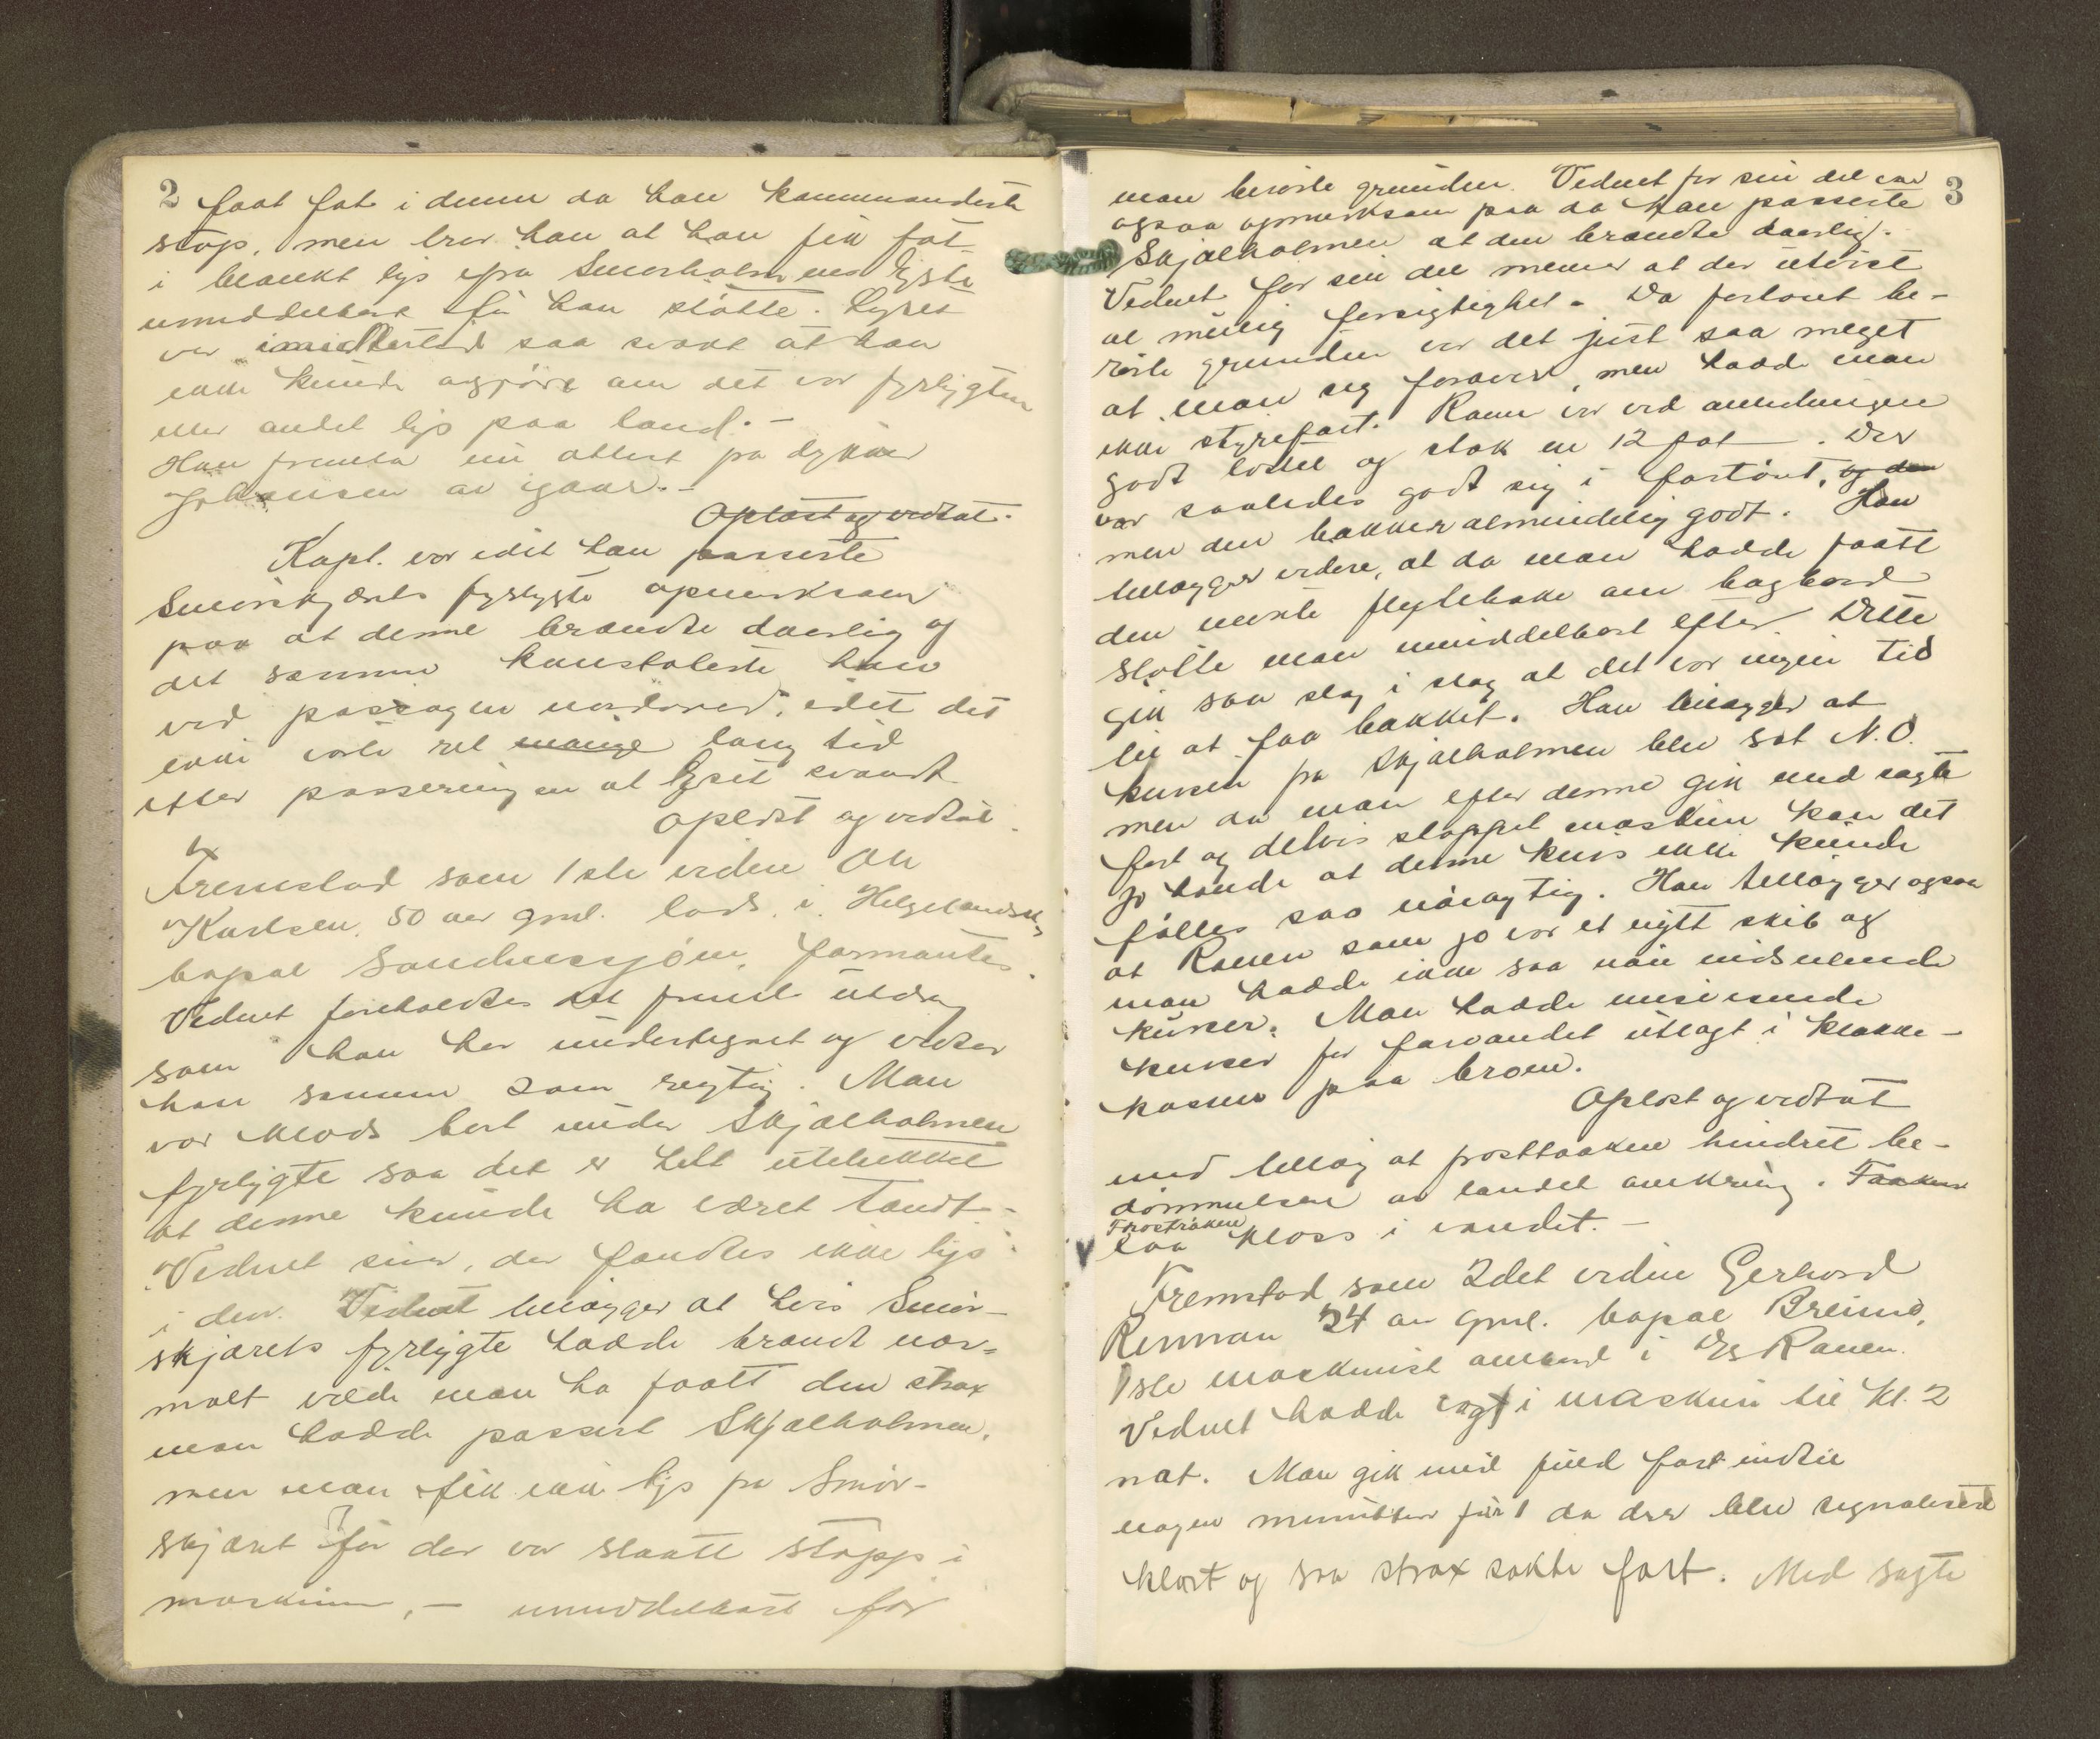 2
faat fat i denne da han kommanderte
stop, men tror han at han fik fat
i blankt lys fra Smørholmens lygte
umiddelbart før han støtte. Lyset
var imidlertid saa svakt at han
ikke kunde avgjøre om det var fyrlygten
eller andet lys paa land. -
Han fremla en attest fra dykker
Johansen av igaar. -
Oplæst og vedtat.
Kapt. var idet han passerte
Smørskjærets fyrlygte opmerksom
paa at denne brændte daarlig og
det samme konstaterte han
ved passagen nordover, idet det
ikke varte ret mange lang tid
efter passeringen at lyset svandt
Oplæst og vedtat.
Fremstod som 1ste vidne Ole
Karlsen, 50 aar gml. lods, i Helgelandske,
bopæl Sandnessjøen, formantes.
Vidnet foreholdtes det fremle utdrag
som han har undertegnet og vedtar
han samme som regtig. Man
var klods bort under Skjælholmen
fyrlygte saa det er helt utelukket
at denne kunde ha været tændt. -
Vidnet sier, der fandtes ikke lys
i den. Vidnet tilføyer at hvis Smør-
skjærets fyrlygte hadde brændt nor-
malt vilde man ha faatt den strax
man hadde passert Skjælholmen,
men man fik ikke lys fra Smør-
skjæret før der var slaatt stopp i
maskinen, - umiddelbart før
3
man berørte grunden. Vidnet for sin del var
ogsaa opmerksom paa da han passerte
Skjælholmen at den brændte daarlig.
Vidnet for sin del mener at der utvist
al mulig forsigtighet. Da fartøiet be-
rørte grunden var det just saa meget
at man seg forover, men hadde man
ikke styrefart. Ranen var ved anledningen
godt lastet og stak en 12 fot. Der
var saaledes godt sig i fartøiet, og den
men den bakker almindelig godt. Han
tillægger videre, at da man hadde faatt
den nevnte flytebake om bagbord
støtte man umiddelbart efter. Dette
gik saa slag i slag at det var ingen tid
til at faa bakket. Han tillægger at
kursen fra Skjælholmen blev sat N.O.
men da man efter denne gik med sagte
fart og delvis stoppet maskin kan det
jo hænde at denne kurs ikke kunde
følges saa nøiagtig. Han tillægger ogsaa
at Ranen som jo var et nytt skib og
man hadde ikke saa nøie indseilede
kurser. Man hadde misvisende
kurser for farvandet utlagt i klokke-
kassen paa broen.
Oplæst og vedtat
med tillæg at frosttaaken hindret be-
dømmelsen av landet omkring. Taaken
Frosttaaken
laa kloss i vandet. -
Fremstod som 2det vidne Gerhard
Renman 24 aar gml. bopæl Breimo,
1ste maskinist ombord i D/S Ranen.
Vidnet hadde vagt i maskin til kl. 2
nat. Man gik med fuld fart indtil
nogen minutter før 1 da der blev signalisert
klart og saa strax sakte fart. Med sagte